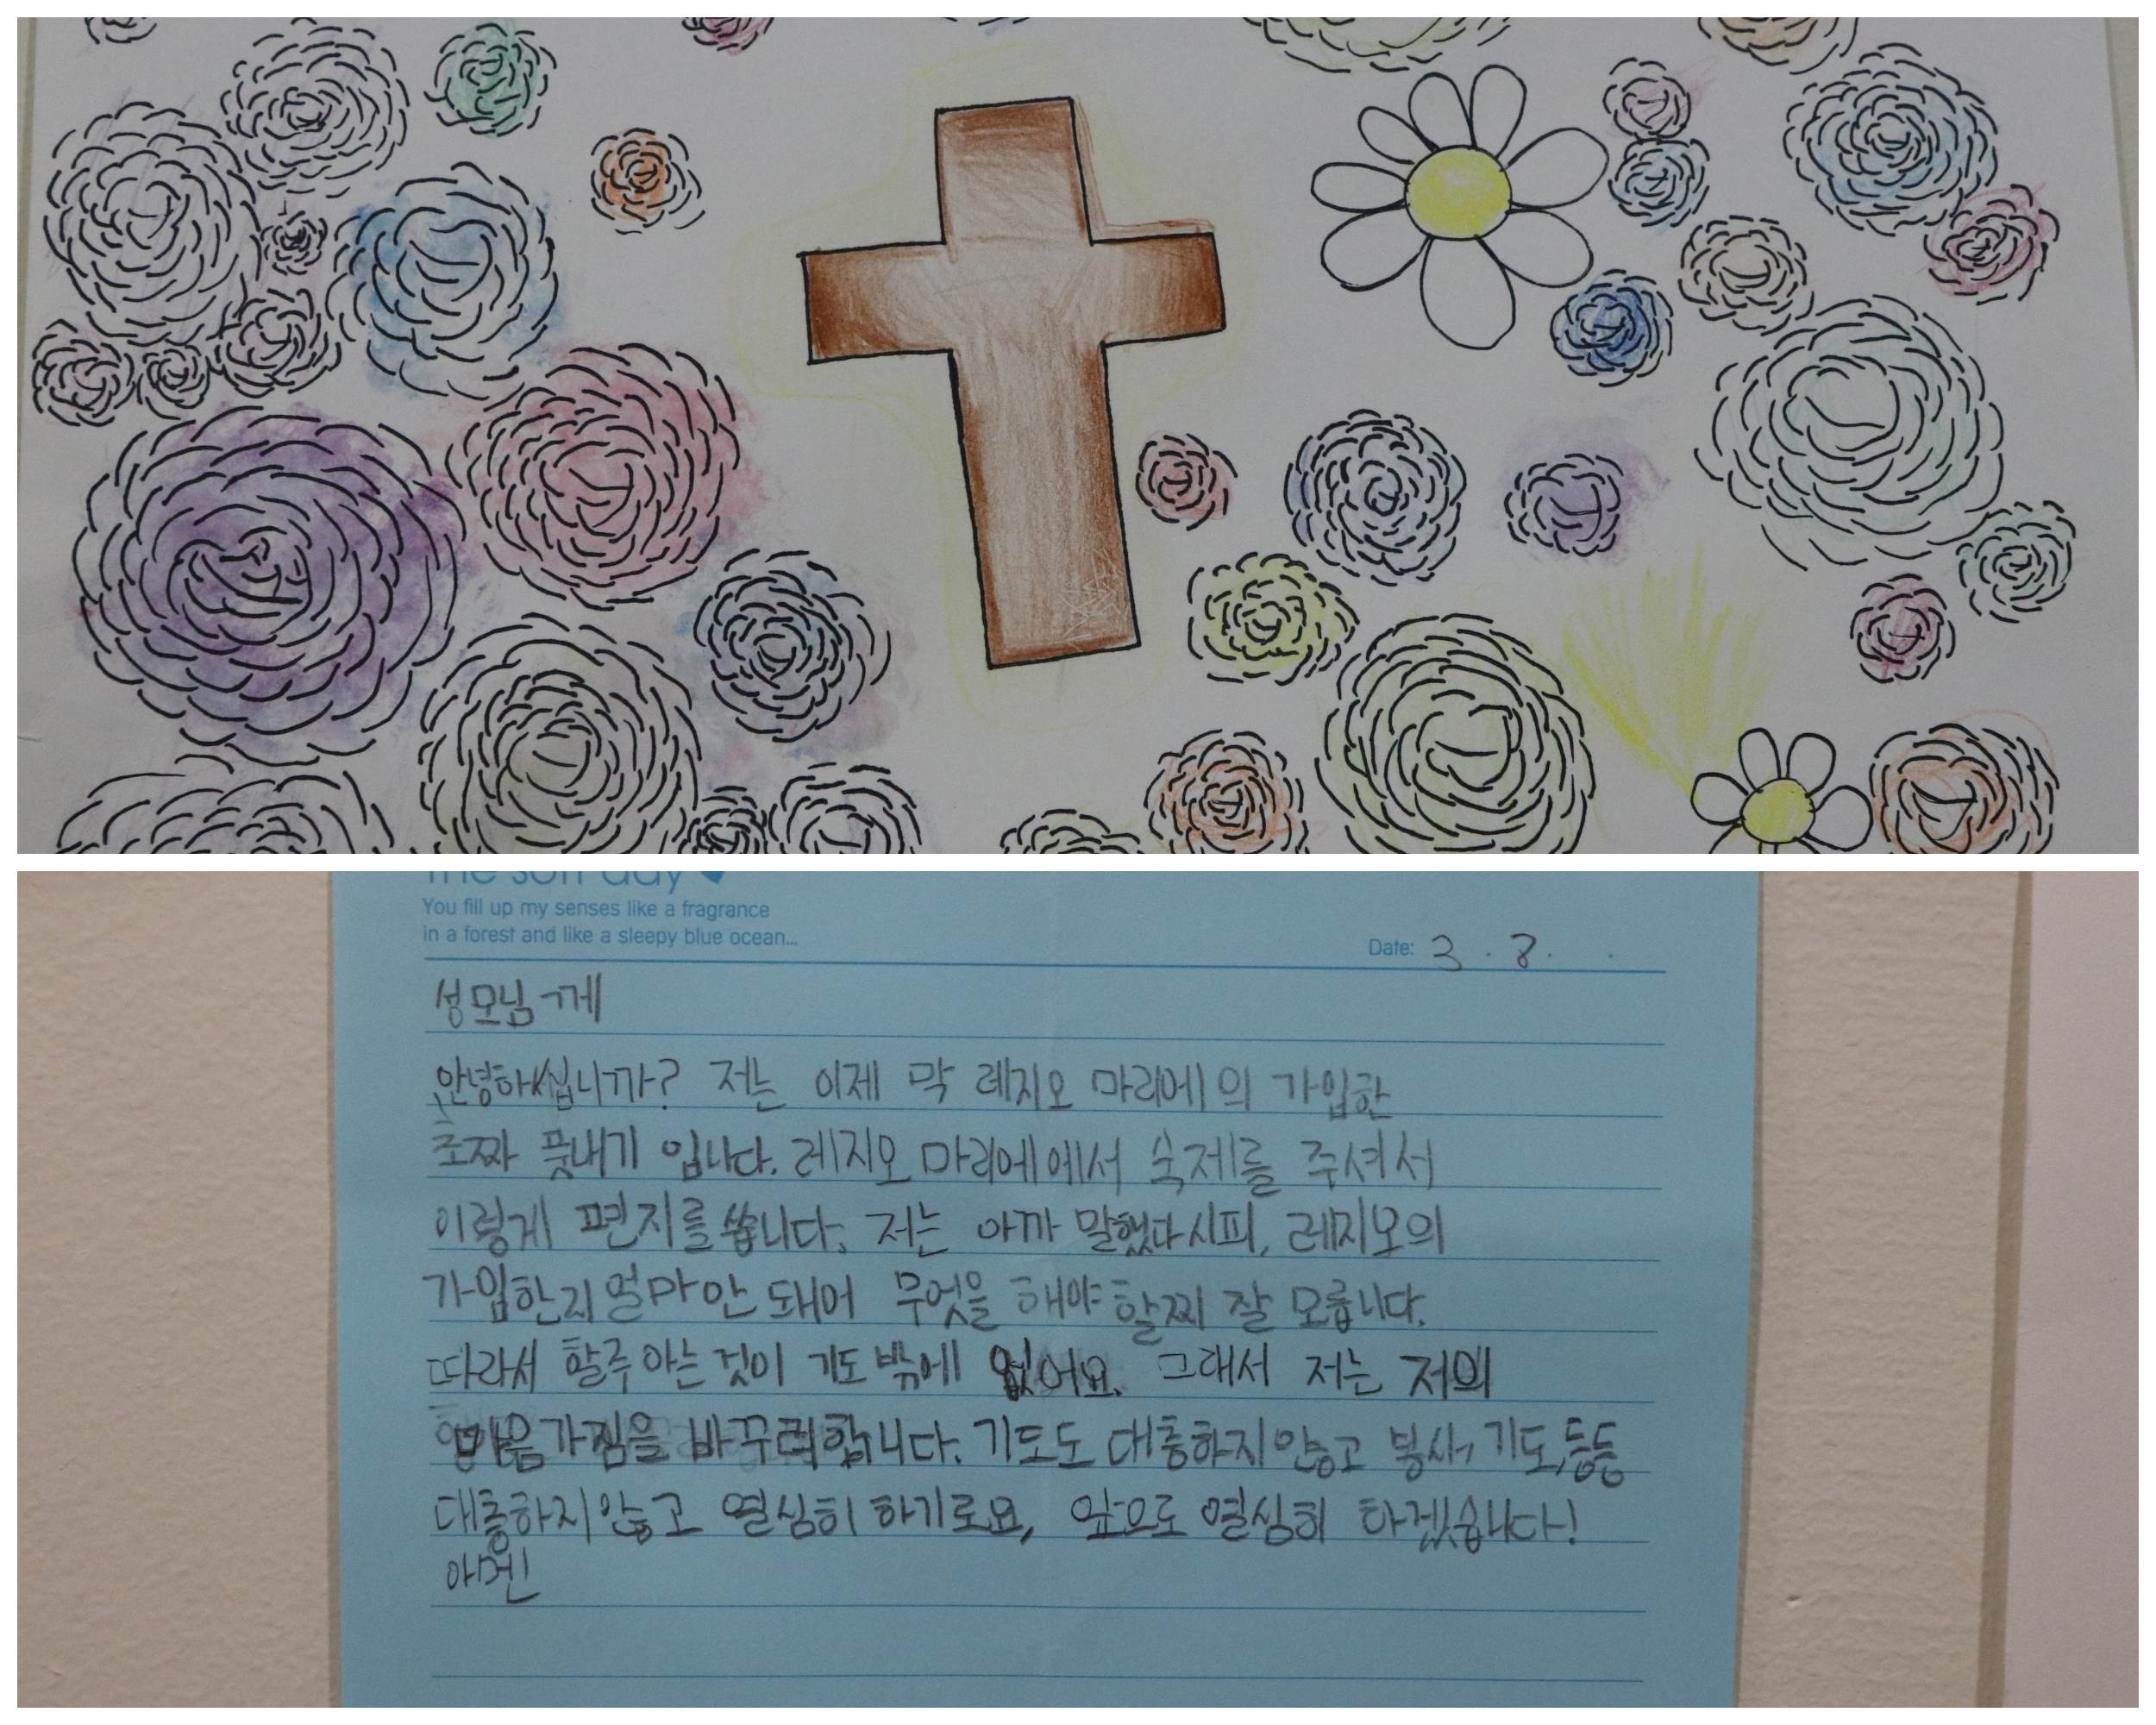 The soft day
You fill up my senses like a fragrance
in a forest and like a sleepy blue ocean...
Date: 3 . 8 .
성모님께
안녕하십니까? 저는 이제 막 레지오 마리에의 가입한
초짜 풋내기 입니다. 레지오 마리에에서 숙제를 주셔서
이렇게 편지를 씁니다. 저는 아까 말했다시피, 레지오의
가입한지 얼마 안 돼어 무엇을 해야 할찌 잘 모릅니다.
따라서 할주 아는 것이 기도 밖에 없어요. 그래서 저는 저의
마음가짐을 바꾸려 합니다. 기도도 대충하지 않고 봉사, 기도, 등등
대충하지 않고 열심히 하기로요, 앞으로 열심히 하겠습니다!
아멘